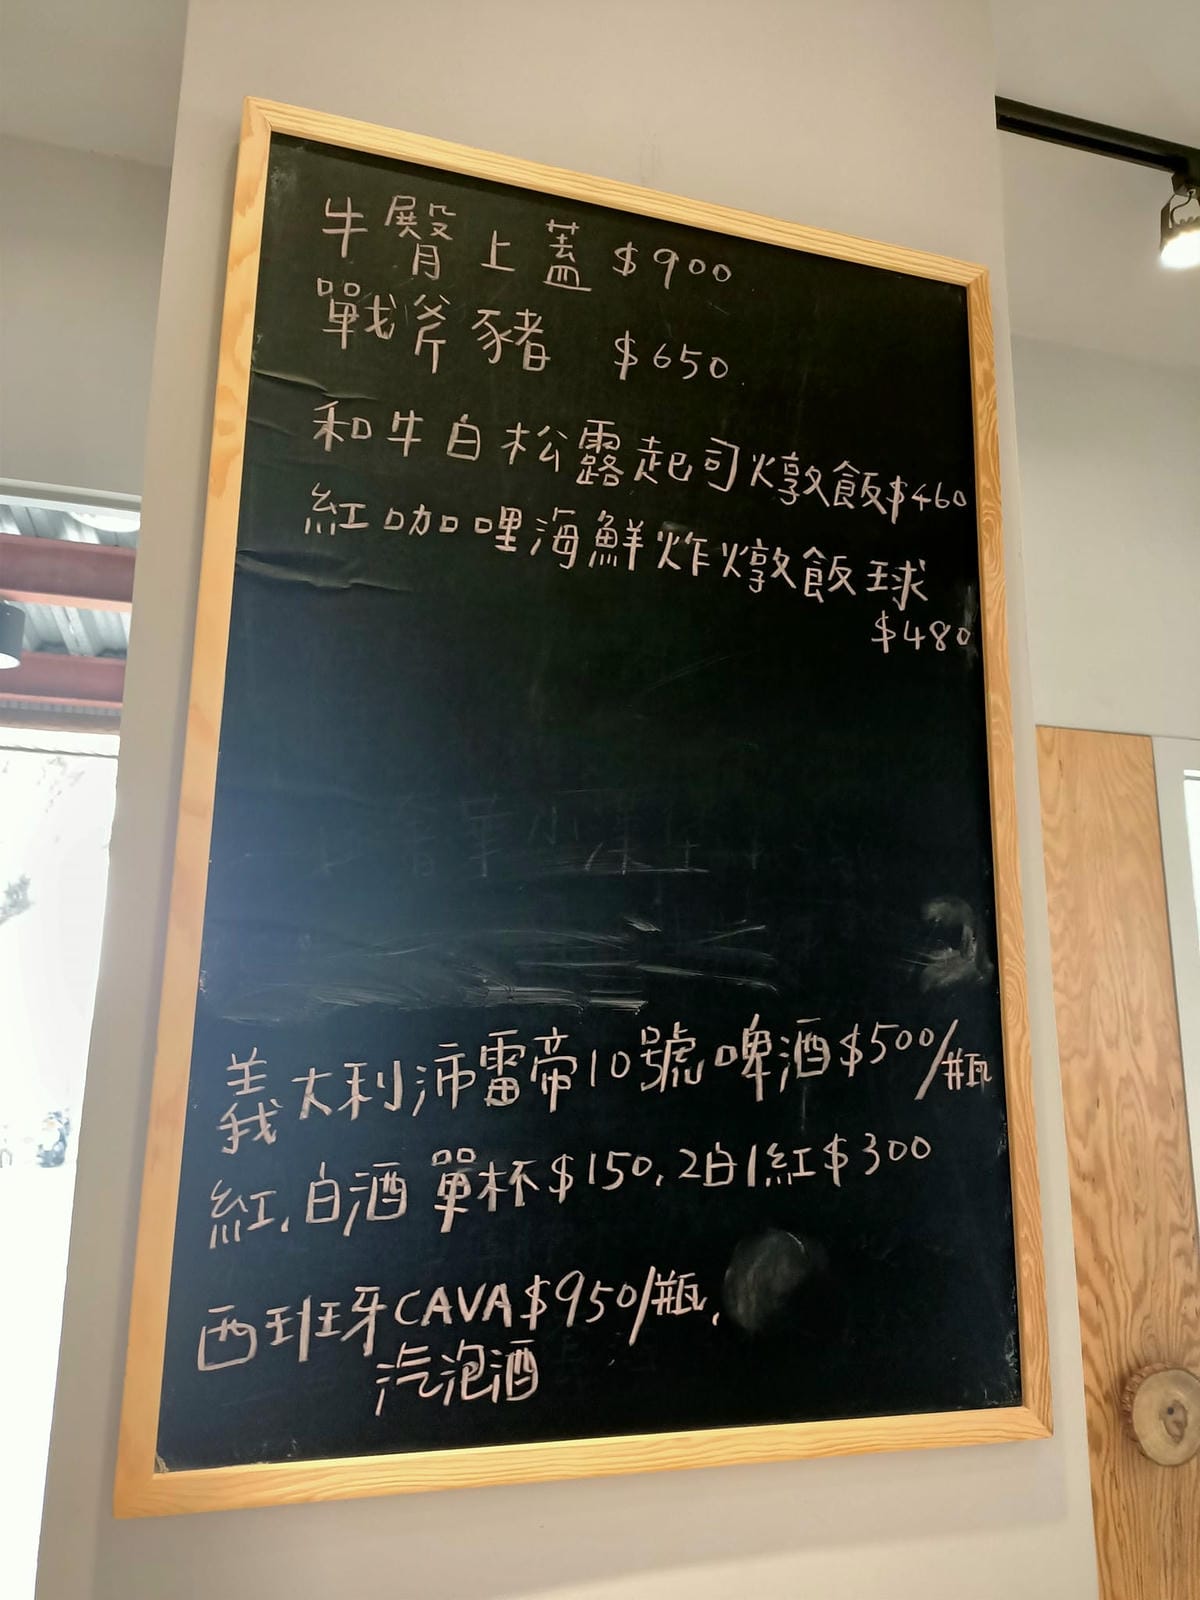 牛臀上蓋 $900
戰斧豬 $650
和牛白松露起司燉飯$460
紅咖哩海鮮炸燉飯球
$480
義大利沛雷帝10號啤酒$500/瓶
紅.白酒單杯$150.2白1紅$300
西班牙CAVA$950/瓶.
汽泡酒